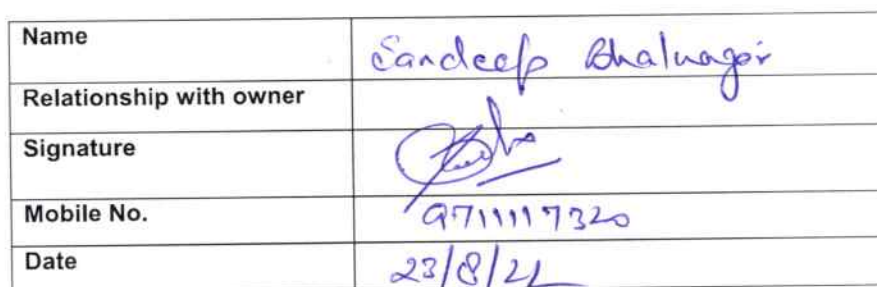 Name Sandeep Bhatnagar
Relationship with owner
Signature
Mobile No. 9711117320
Date 23/8/21